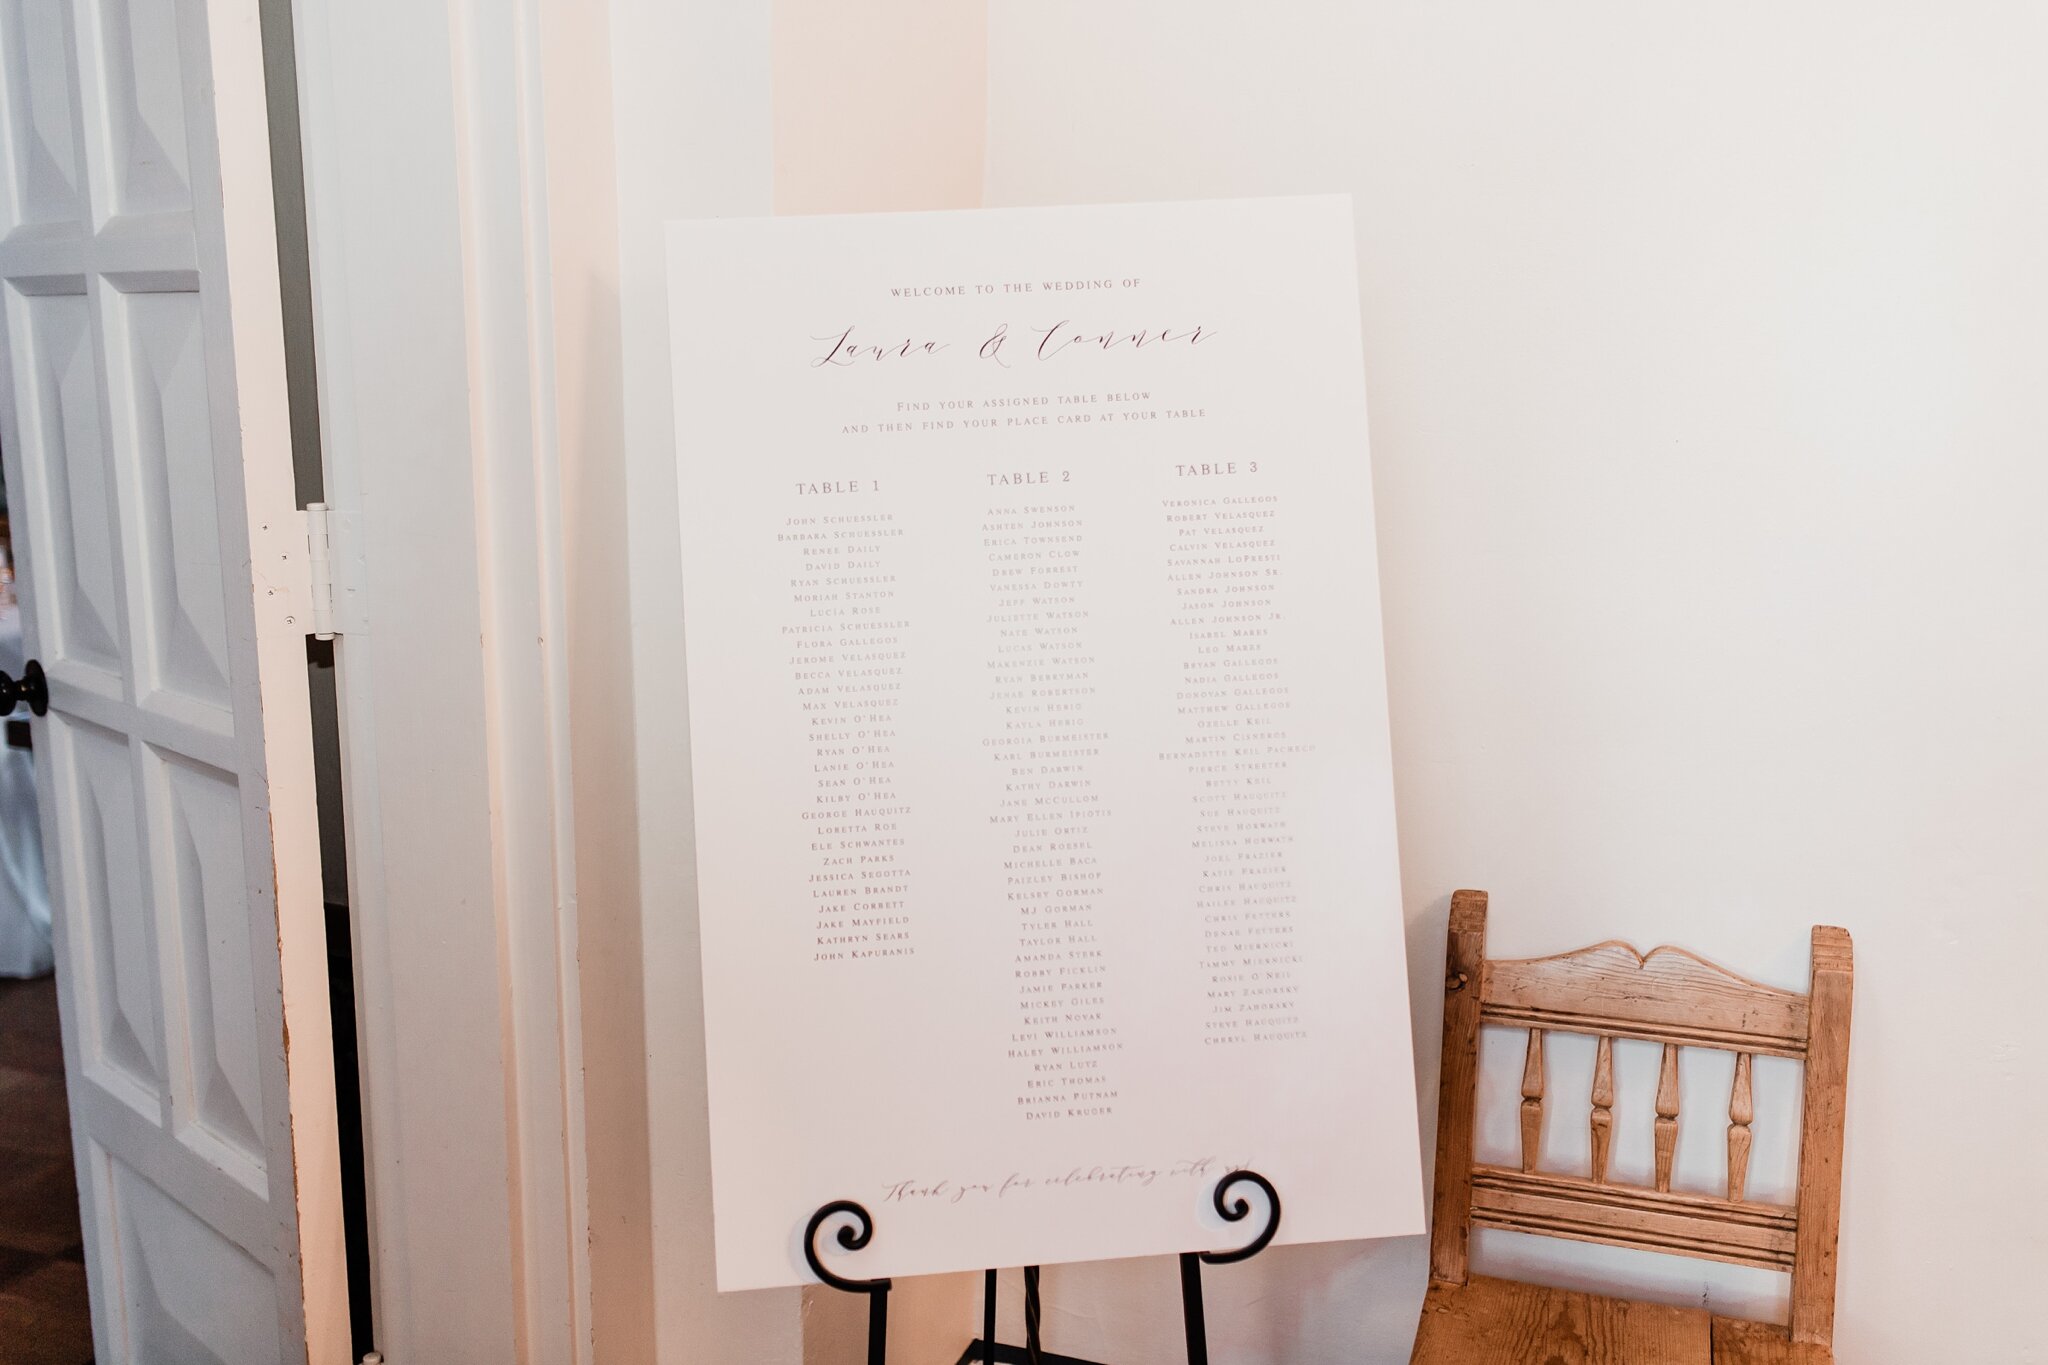 WELCOME TO THE WEDDING OF
Laura & Conner
FIND YOUR ASSIGNED TABLE BELOW
AND THEN FIND YOUR PLACE CARD AT YOUR TABLE
TABLE 1
JOHN SCHUESSLER
BARBARA SCHUESSLER
RENEE DAILY
DAVID DAILY
RYAN SCHUESSLER
MORIAH STANTON
LUCIA ROSE
PATRICIA SCHUESSLER
FLORA GALLEGOS
JEROME VELASQUEZ
BECCA VELASQUEZ
ADAM VELASQUEZ
MAX VELASQUEZ
KEVIN O'HEA
SHELLY O'HEA
RYAN O'HEA
LANIE O'HEA
SEAN O'HEA
KILBY O'HEA
GEORGE HAUQUITZ
LORETTA ROE
ELE SCHWANTES
ZACH PARKS
JESSICA SEGOTTA
LAUREN BRANDT
JAKE CORBETT
JAKE MAYFIELD
KATHRYN SEARS
JOHN KAPURANIS
TABLE 2
ANNA SWENSON
ASHTEN JOHNSON
ERICA TOWNSEND
CAMERON CLOW
DREW FORREST
VANESSA DOWTY
JEFF WATSON
JULIETTE WATSON
NATE WATSON
LUCAS WATSON
MAKENZIE WATSON
RYAN BERRYMAN
JENAE ROBERTSON
KEVIN HERIG
KAYLA HERIG
GEORGIA BURMEISTER
KARL BURMEISTER
BEN DARWIN
KATHY DARWIN
JANE MCCULLOM
MARY ELLEN IPIOTIS
JULIE ORTIZ
DEAN ROESEL
MICHELLE BACA
PAIZLEY BISHOP
KELSEY GORMAN
MJ GORMAN
TYLER HALL
TAYLOR HALL
AMANDA STERK
ROBBY FICKLIN
JAMIE PARKER
MICKEY GILES
KEITH NOVAK
LEVI WILLIAMSON
HALEY WILLIAMSON
RYAN LUTZ
ERIC THOMAS
BRIANNA PUTNAM
DAVID KRUGER
TABLE 3
VERONICA GALLEGOS
ROBERT VELASQUEZ
PAT VELASQUEZ
CALVIN VELASQUEZ
SAVANNAH LOPRESTI
ALLEN JOHNSON SR.
SANDRA JOHNSON
JASON JOHNSON
ALLEN JOHNSON JR.
ISABEL MARES
LEO MARES
BRYAN GALLEGOS
NADIA GALLEGOS
DONOVAN GALLEGOS
MATTHEW GALLEGOS
OZELLE KEIL
MARTIN CISNEROS
BERNADETTE KEIL PACHECO
PIERCE STREETER
BETTY KEIL
SCOTT HAUQUITZ
SUE HAUQUITZ
STEVE HORWATH
MELISSA HORWATH
JOEL FRAZIER
KATIE FRAZIER
CHRIS HAUQUITZ
HAILEE HAUQUITZ
CHRIS FETTERS
DENAE FETTERS
TED MIERNICKI
TAMMY MIERNICKI
ROSIE O'NEIL
MARY ZAHORSKY
JIM ZAHORSKY
STEVE HAUQUITZ
CHERYL HAUQUITZ
Thank you for celebrating with us!